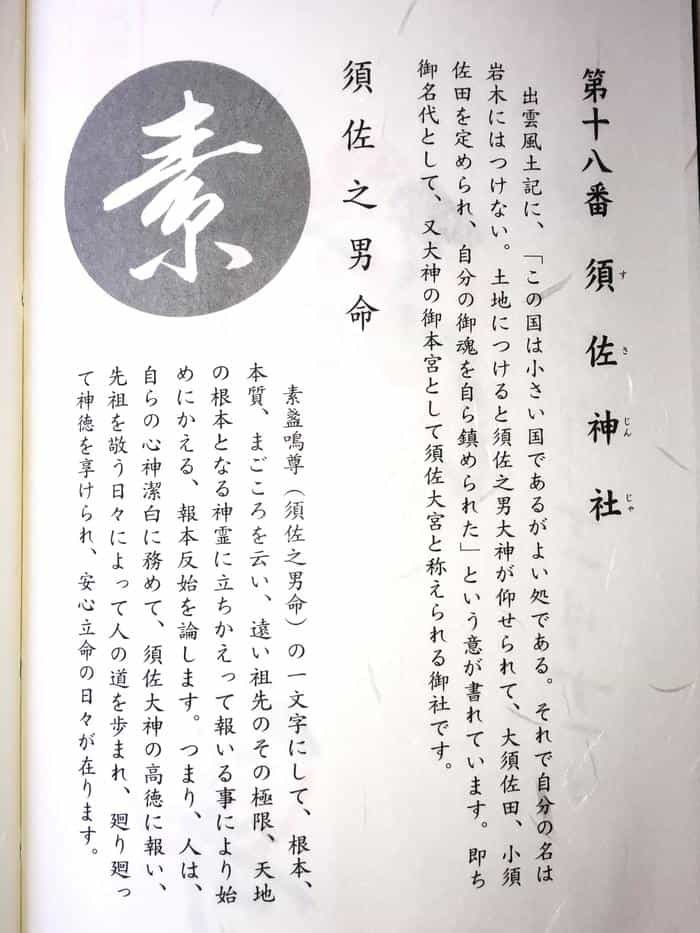 第十八番 須佐神社
すさじんじゃ
出雲風土記に、「この国は小さい国であるがよい処である。それで自分の名は
岩木にはつけない。土地につけると須佐之男大神が仰せられて、大須佐田、小須
佐田を定められ、自分の御魂を自ら鎮められた」という意が書れています。即ち
御名代として、又大神の御本宮として須佐大宮と称えられる御社です。
須佐之男命
素
素盞嗚尊(須佐之男命)の一文字にして、根本、
本質、まごころを云い、遠い祖先のその極限、天地
の根本となる神霊に立ちかえって報いる事により始
めにかえる、報本反始を論します。つまり、人は、
自らの心神潔白に務めて、須佐大神の高徳に報い、
先祖を敬う日々によって人の道を歩まれ、廻り廻っ
て神徳を享けられ、安心立命の日々が在ります。